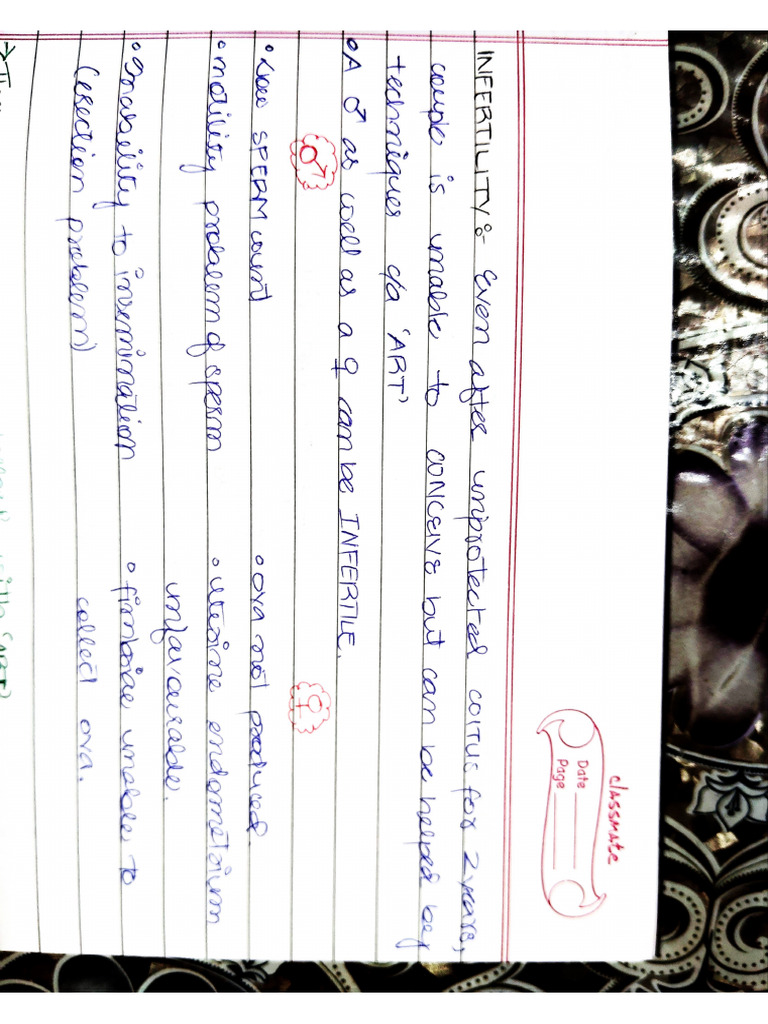 classmate
Date
Page
INFERTILITY :- Even after unprotected coitus for 2 years,
couple is unable to CONCEIVE but can be helped by
techniques c/a 'ART'
• A ♂ as well as a ♀ can be INFERTILE.
♂ ♀
• Low SPERM count • ova not produced.
• motility problem of sperm • uterine endometrium
unfavourable.
• Inability to insemination • fimbriae unable to
(erection problem) collect ova.
with 'ART'